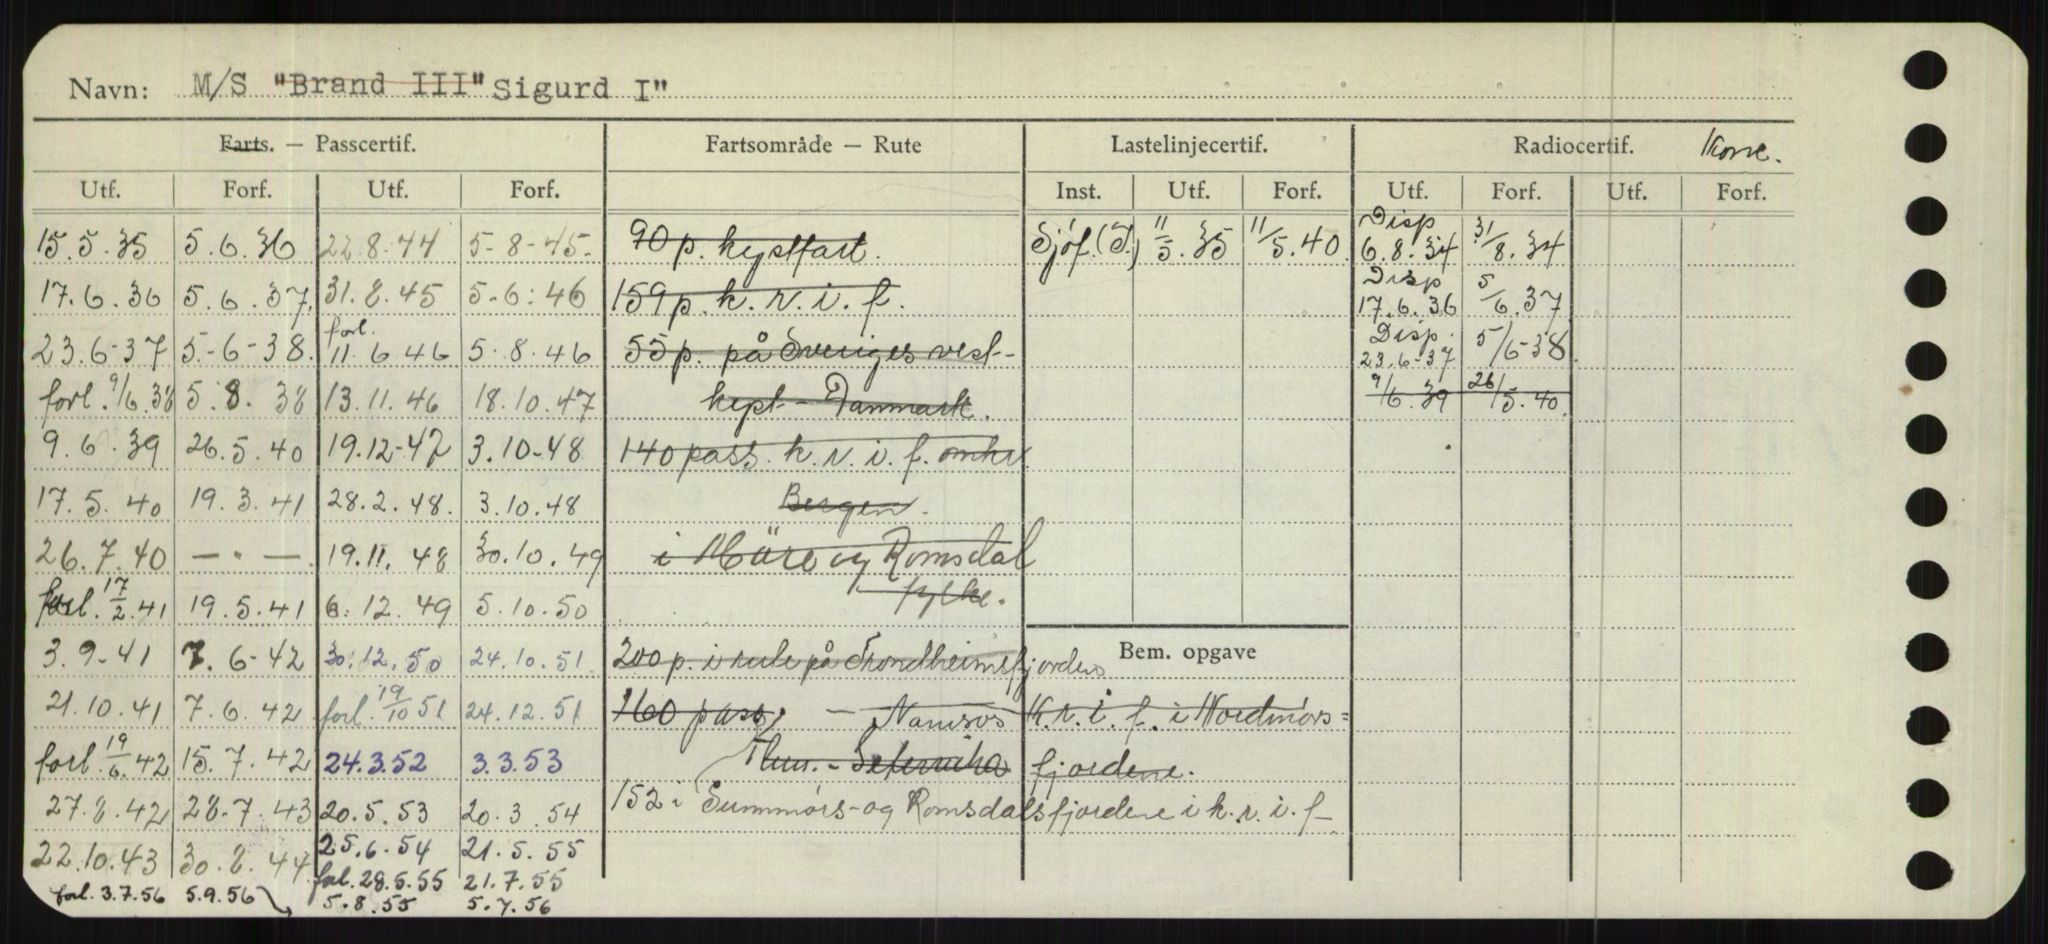 Navn: M/S "Brand III" Sigurd I"
Farts. — Passcertif. Fartsområde — Rute Lastelinjecertif. Radiocertif.
Utf. Forf. Utf. Forf. Inst. Utf. Forf. Utf. Forf. Utf. Forf.
15.5.35 5.6.36 22.8.44 5-8-45. 90 p. kystfart. Sjöf. (I.) 11/5.35 11/5.40 Disp 6.8.34 31/8.34
17.6.36 5.6.37. 31.8.45 5-6:46 159 p. k.r.i.f. Disp 17.6.36 5/6.37
23.6-37 5.-6-38. forl. 11.6.46 5.8.46 55 p. på Sveriges vest- Disp. 23.6-37 5/6-38
forl. 9/6.38 5.8.38 13.11.46 18.10.47 kyst - Danmark. 9/6.39 26/5.40
9.6.39 26.5.40 19.12-47 3.10-48 140 pass. k.r.i.f. omkr
17.5.40 19.3.41 28.2.48. 3.10.48 Bergen.
26.7.40 — " — 19.11.48 30.10.49 i Möre og Romsdal
forl. 17/2.41 19.5.41 6.12.49 5.10.50 fylke.
3.9-41 7.6-42 30.12.50 24.10.51. 200 p. i rute på Trondheimsfjorden Bem. opgave
21.10.41 7.6.42 forl. 19/10 51 24.12.51 160 pass, — Namsos K.r.i.f. i Nordmörs=
forl. 19/6.42 15.7.42 24.3.52 3.3.53 fjordene.
27.8.42 28.7.43 20.5.53 20.3.54 152 i Sunnmörs- og Romsdalsfjordene i k.r.i.f-
22.10.43 30.8.44 25.6-54 21.5.55
forl. 28.5.55 21.7.55
forl. 3.7.56 5.9.56 5.8.55 5.7.56